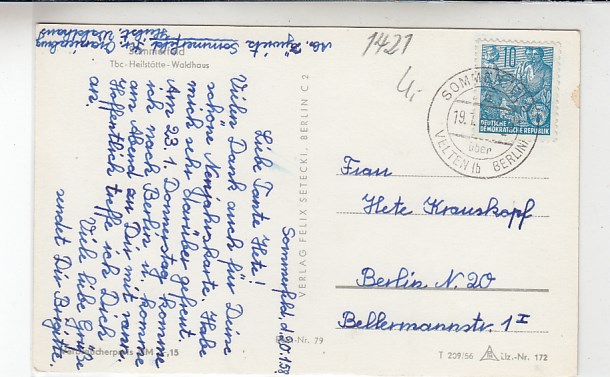 Sommerfeld
Tbc-Heilstätte-Waldhaus
Sommerfeld, d. 20.1.58
Liebe Tante Hete!
Vielen Dank auch für Deine
schöne Neujahrskarte. Habe
mich sehr darüber gefreut
Am 23.1. Donnerstag komme
ich nach Berlin u. komme
am Abend an Dir mit rann.
Hoffentlich treffe ich Dich
an.
Viele liebe Grüße
sendet Dir Brigitte.
Sommerfeld
Waldhaus
1421
VERLAG FELIX SETECKI, BERLIN C 2
10
DEUTSCHE
DEMOKRATISCHE REPUBLIK
SOMMERFELD
19.1.
über
VELTEN
BERLIN
Frau
Hete Krauskopf
Berlin N. 20
Bellermannstr. 1 I
-Nr. 79
T 209/56
Liz.-Nr. 172